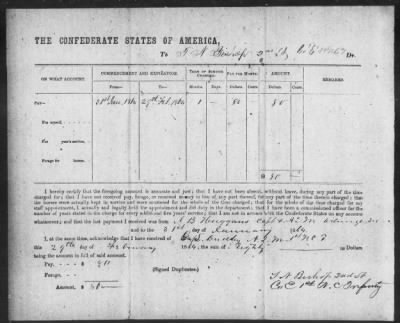 THE CONFEDERATE STATES OF AMERICA,
To T. N. Bishop 2nd Lt, Co C 1st N C T Dr.
ON WHAT ACCOUNT. COMMENCEMENT AND EXPIRATION. TERM OF SERVICE CHARGED. PAY PER MONTH. AMOUNT. REMARKS.
From— To— Months. Days. Dollars. Cents. Dollars. Cents.
Pay— 31st Jan, 1864 29th Feb, 1864 1 - 80 80
For myself
For year's service;
Forage for horses,
$ 80
I hereby certify that the foregoing amount is accurate and just; that I have not been absent, without leave, during any part of the time
charged for; that I have not received pay, forage, or received money in lieu of any part thereof, for any part of the time therein charged; that
the horses were actually kept in service and were mustered for the whole of the time charged; that for the whole of the time charged for my
staff appointment, I actually and legally held the appointment and did duty in the department; that I have been a commissioned officer for the
number of years stated in the charge for every additional five years' service; that I am not in arrears with the Confederate States on any account
whatsoever; and that the last payment I received was from Capt & A. Q. M.
and to the 31st day of January 1864.
I, at the same time, acknowledge that I have received of Capt A. Q. M. 1st N C T
this 29th day of February 1864, the sum of Eighty Dollars
being the amount in full of said account.
Pay, - - - $ 80
Forage, -
Amount, $ 80
(Signed Duplicates.)
T. N. Bishop 2nd Lt.
Co C 1st N. C. Infantry